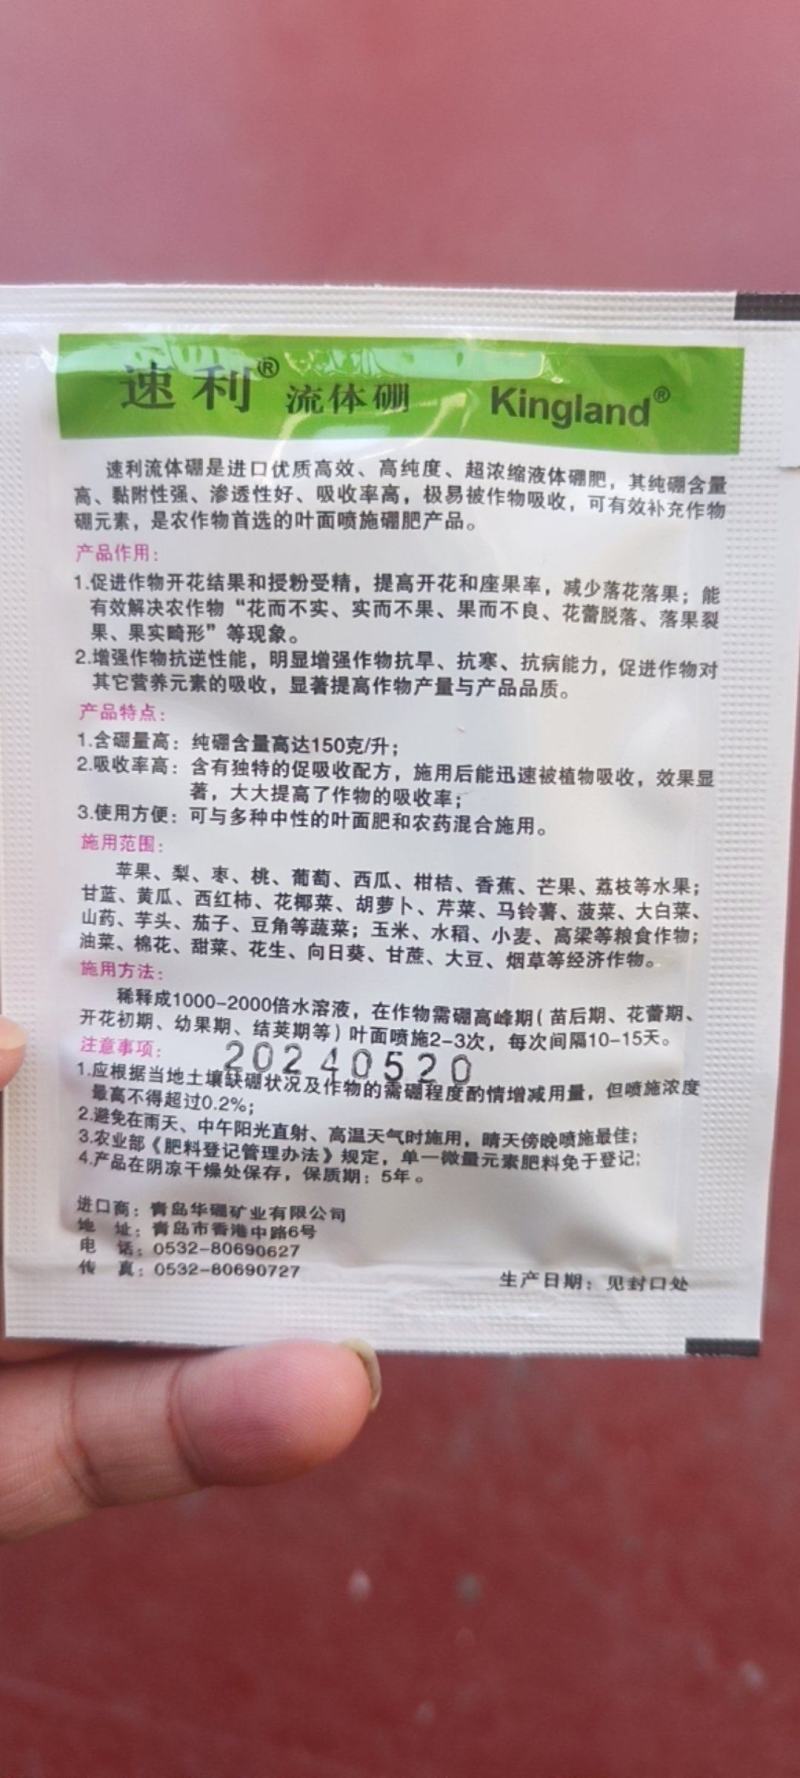 速利® 流体硼 Kingland®
速利流体硼是进口优质高效、高纯度、超浓缩液体硼肥，其纯硼含量
高、黏附性强、渗透性好、吸收率高，极易被作物吸收，可有效补充作物
硼元素，是农作物首选的叶面喷施硼肥产品。
产品作用：
1.促进作物开花结果和授粉受精，提高开花和座果率，减少落花落果；能
有效解决农作物“花而不实、实而不果、果而不良、花蕾脱落、落果裂
果、果实畸形”等现象。
2.增强作物抗逆性能，明显增强作物抗旱、抗寒、抗病能力，促进作物对
其它营养元素的吸收，显著提高作物产量与产品品质。
产品特点：
1.含硼量高：纯硼含量高达150克/升；
2.吸收率高：含有独特的促吸收配方，施用后能迅速被植物吸收，效果显
著，大大提高了作物的吸收率；
3.使用方便：可与多种中性的叶面肥和农药混合施用。
施用范围：
苹果、梨、枣、桃、葡萄、西瓜、柑桔、香蕉、芒果、荔枝等水果；
甘蓝、黄瓜、西红柿、花椰菜、胡萝卜、芹菜、马铃薯、菠菜、大白菜、
山药、芋头、茄子、豆角等蔬菜；玉米、水稻、小麦、高粱等粮食作物；
油菜、棉花、甜菜、花生、向日葵、甘蔗、大豆、烟草等经济作物。
施用方法：
稀释成1000-2000倍水溶液，在作物需硼高峰期（苗后期、花蕾期、
开花初期、幼果期、结荚期等）叶面喷施2-3次，每次间隔10-15天。
注意事项：
20240520
1.应根据当地土壤缺硼状况及作物的需硼程度酌情增减用量，但喷施浓度
最高不得超过0.2%；
2.避免在雨天、中午阳光直射、高温天气时施用，晴天傍晚喷施最佳；
3.农业部《肥料登记管理办法》规定，单一微量元素肥料免于登记；
4.产品在阴凉干燥处保存，保质期：5年。
进口商：青岛华硼矿业有限公司
地 址：青岛市香港中路6号
电 话：0532-80690627
传 真：0532-80690727
生产日期：见封口处